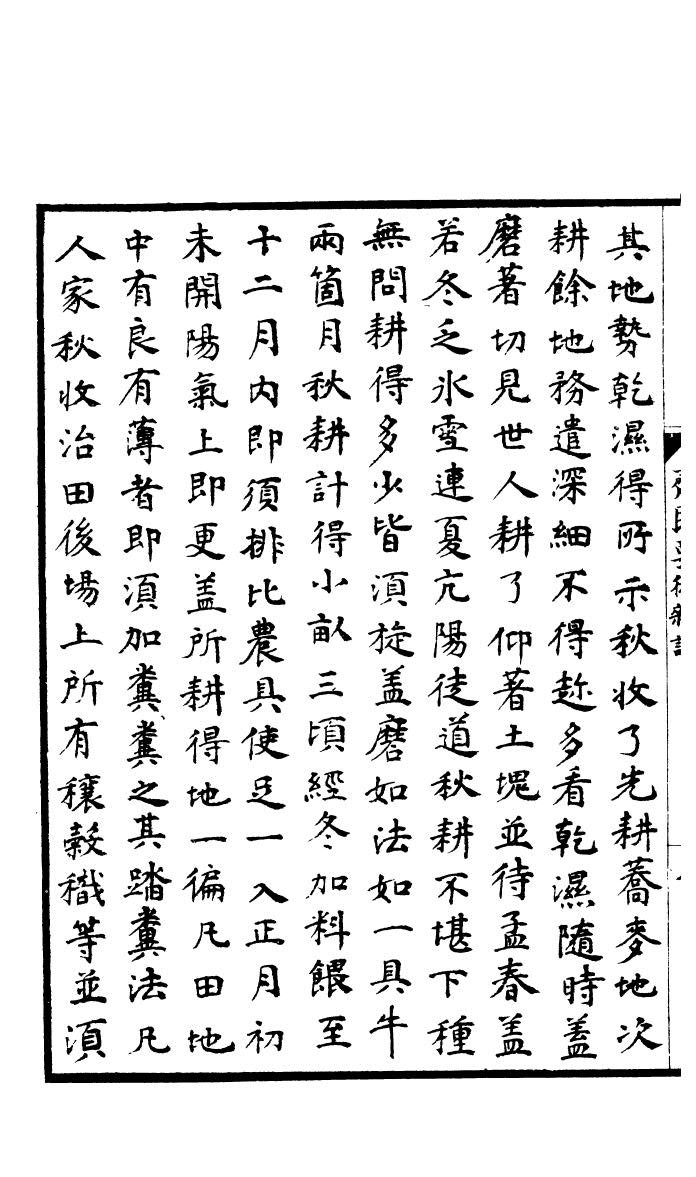 其地勢乾濕得所示秋收了先耕蕎麥地次
耕餘地務遣深細不得趂多看乾濕隨時盖
磨著切見世人耕了仰著土塊並待孟春盖
若冬乏氷雪連夏亢陽徒道秋耕不堪下種
無問耕得多少皆須旋盖磨如法如一具牛
兩箇月秋耕計得小畝三頃經冬加料餵至
十二月内即須排比農具使足一入正月初
未開陽氣上即更盖所耕得地一徧凡田地
中有良有薄者即須加糞糞之其踏糞法凡
人家秋收治田後場上所有穰穀樴等並須